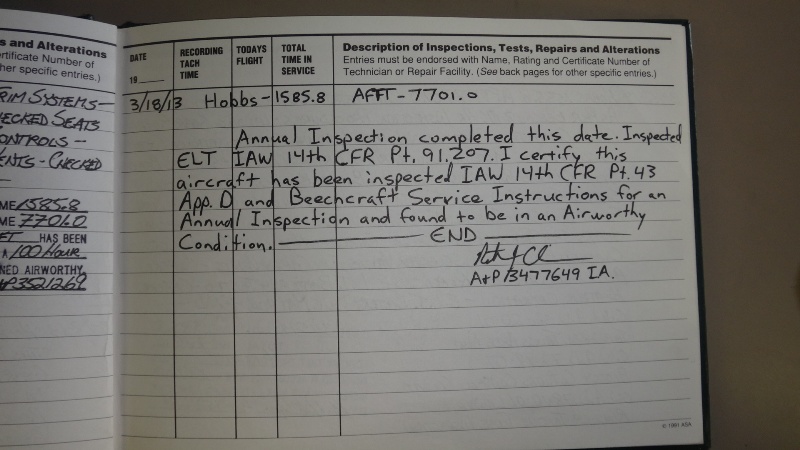 s and Alterations
ertificate Number of
her specific entries.)
RIM SYSTEMS-
ECKED SEATS
ONTROLS -
ENTS - CHECKED
ME 1585.8
ME 7701.0
HAS BEEN
100 HOUR
NED AIRWORTHY
P 3521269
DATE
19
RECORDING
TACH
TIME
TODAYS
FLIGHT
TOTAL
TIME IN
SERVICE
Description of Inspections, Tests, Repairs and Alterations
Entries must be endorsed with Name, Rating and Certificate Number of
Technician or Repair Facility. (See back pages for other specific entries.)
3/18/13 Hobbs-1585.8 AFTT-7701.0
Annual Inspection completed this date. Inspected
ELT IAW 14th CFR Pt. 91.207. I certify this
aircraft has been inspected IAW 14th CFR Pt. 43
App. D and Beechcraft Service Instructions for an
Annual Inspection and found to be in an Airworthy
Condition. END
A+P 3477649 IA.
© 1991 ASA